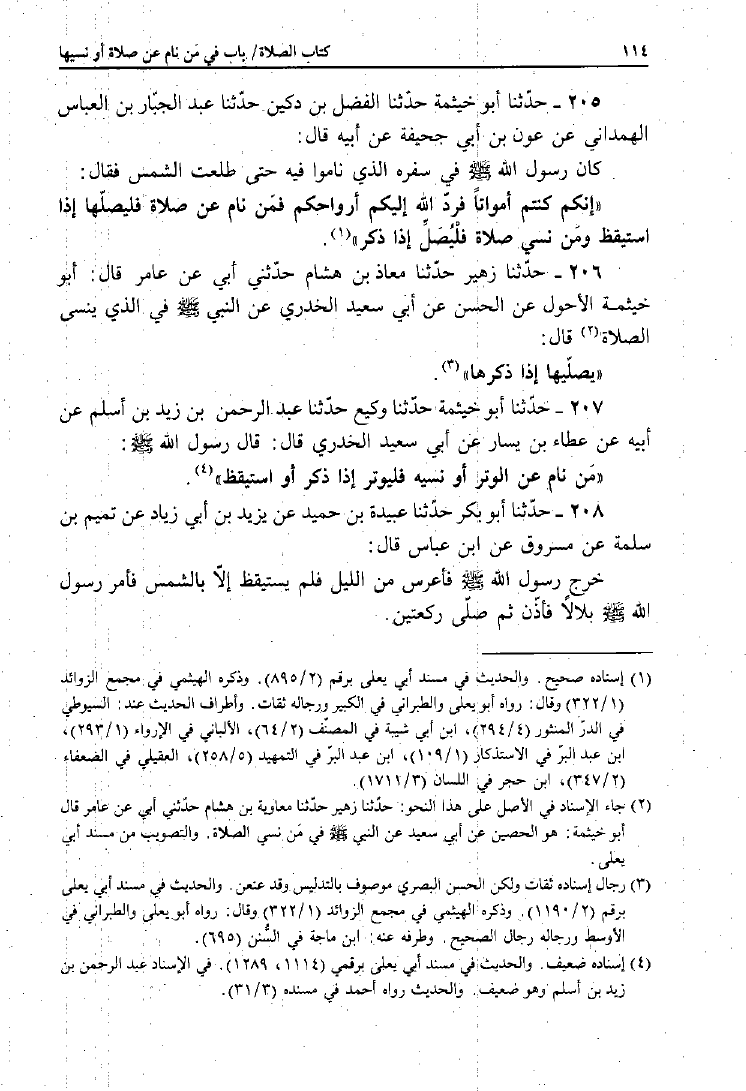 ١١٤ كتاب الصلاة/ باب في مَن نام عن صلاة أو نسيها
٢٠٥ ـ حدّثنا أبو خيثمة حدّثنا الفضل بن دكين حدّثنا عبد الجبّار بن العباس
الهمداني عن عون بن أبي جحيفة عن أبيه قال:
كان رسول الله ﷺ في سفره الذي ناموا فيه حتى طلعت الشمس فقال:
«إنكم كنتم أمواتاً فردّ الله إليكم أرواحكم فمَن نام عن صلاة فليصلّها إذا
استيقظ ومَن نسي صلاة فلْيُصَلِّ إذا ذكر»(١).
٢٠٦ ـ حدّثنا زهير حدّثنا معاذ بن هشام حدّثني أبي عن عامر قال: أبو
خيثمة الأحول عن الحسن عن أبي سعيد الخدري عن النبي ﷺ في الذي ينسى
الصلاة(٢) قال:
«يصلّيها إذا ذكرها»(٣).
٢٠٧ ـ حدّثنا أبو خيثمة حدّثنا وكيع حدّثنا عبد الرحمن بن زيد بن أسلم عن
أبيه عن عطاء بن يسار عن أبي سعيد الخدري قال: قال رسول الله ﷺ:
«مَن نام عن الوتر أو نسيه فليوتر إذا ذكر أو استيقظ»(٤).
٢٠٨ ـ حدّثنا أبو بكر حدّثنا عبيدة بن حميد عن يزيد بن أبي زياد عن تميم بن
سلمة عن مسروق عن ابن عباس قال:
خرج رسول الله ﷺ فأعرس من الليل فلم يستيقظ إلّا بالشمس فأمر رسول
الله ﷺ بلالاً فأذّن ثم صلّى ركعتين.
(١) إسناده صحيح. والحديث في مسند أبي يعلى برقم (٨٩٥/٢). وذكره الهيثمي في مجمع الزوائد
(٣٢٢/١) وقال: رواه أبو يعلى والطبراني في الكبير ورجاله ثقات. وأطراف الحديث عند: السيوطي
في الدرّ المنثور (٢٩٤/٤)، ابن أبي شيبة في المصنّف (٦٤/٢)، الألباني في الإرواء (٢٩٣/١)،
ابن عبد البرّ في الاستذكار (١٠٩/١)، ابن عبد البرّ في التمهيد (٢٥٨/٥)، العقيلي في الضعفاء
(٣٤٧/٢)، ابن حجر في اللسان (١٧١١/٣).
(٢) جاء الإسناد في الأصل على هذا النحو: حدّثنا زهير حدّثنا معاوية بن هشام حدّثني أبي عن عامر قال
أبو خيثمة: هو الحصين عن أبي سعيد عن النبي ﷺ في مَن نسي الصلاة. والتصويب من مسند أبي
يعلى.
(٣) رجال إسناده ثقات ولكن الحسن البصري موصوف بالتدليس وقد عنعن. والحديث في مسند أبي يعلى
برقم (١١٩٠/٢). وذكره الهيثمي في مجمع الزوائد (٣٢٢/١) وقال: رواه أبو يعلى والطبراني في
الأوسط ورجاله رجال الصحيح. وطرفه عنه: ابن ماجة في السُّنن (٦٩٥).
(٤) إسناده ضعيف. والحديث في مسند أبي يعلى برقمي (١١١٤، ١٢٨٩). في الإسناد عبد الرحمن بن
زيد بن أسلم وهو ضعيف. والحديث رواه أحمد في مسنده (٣١/٣).